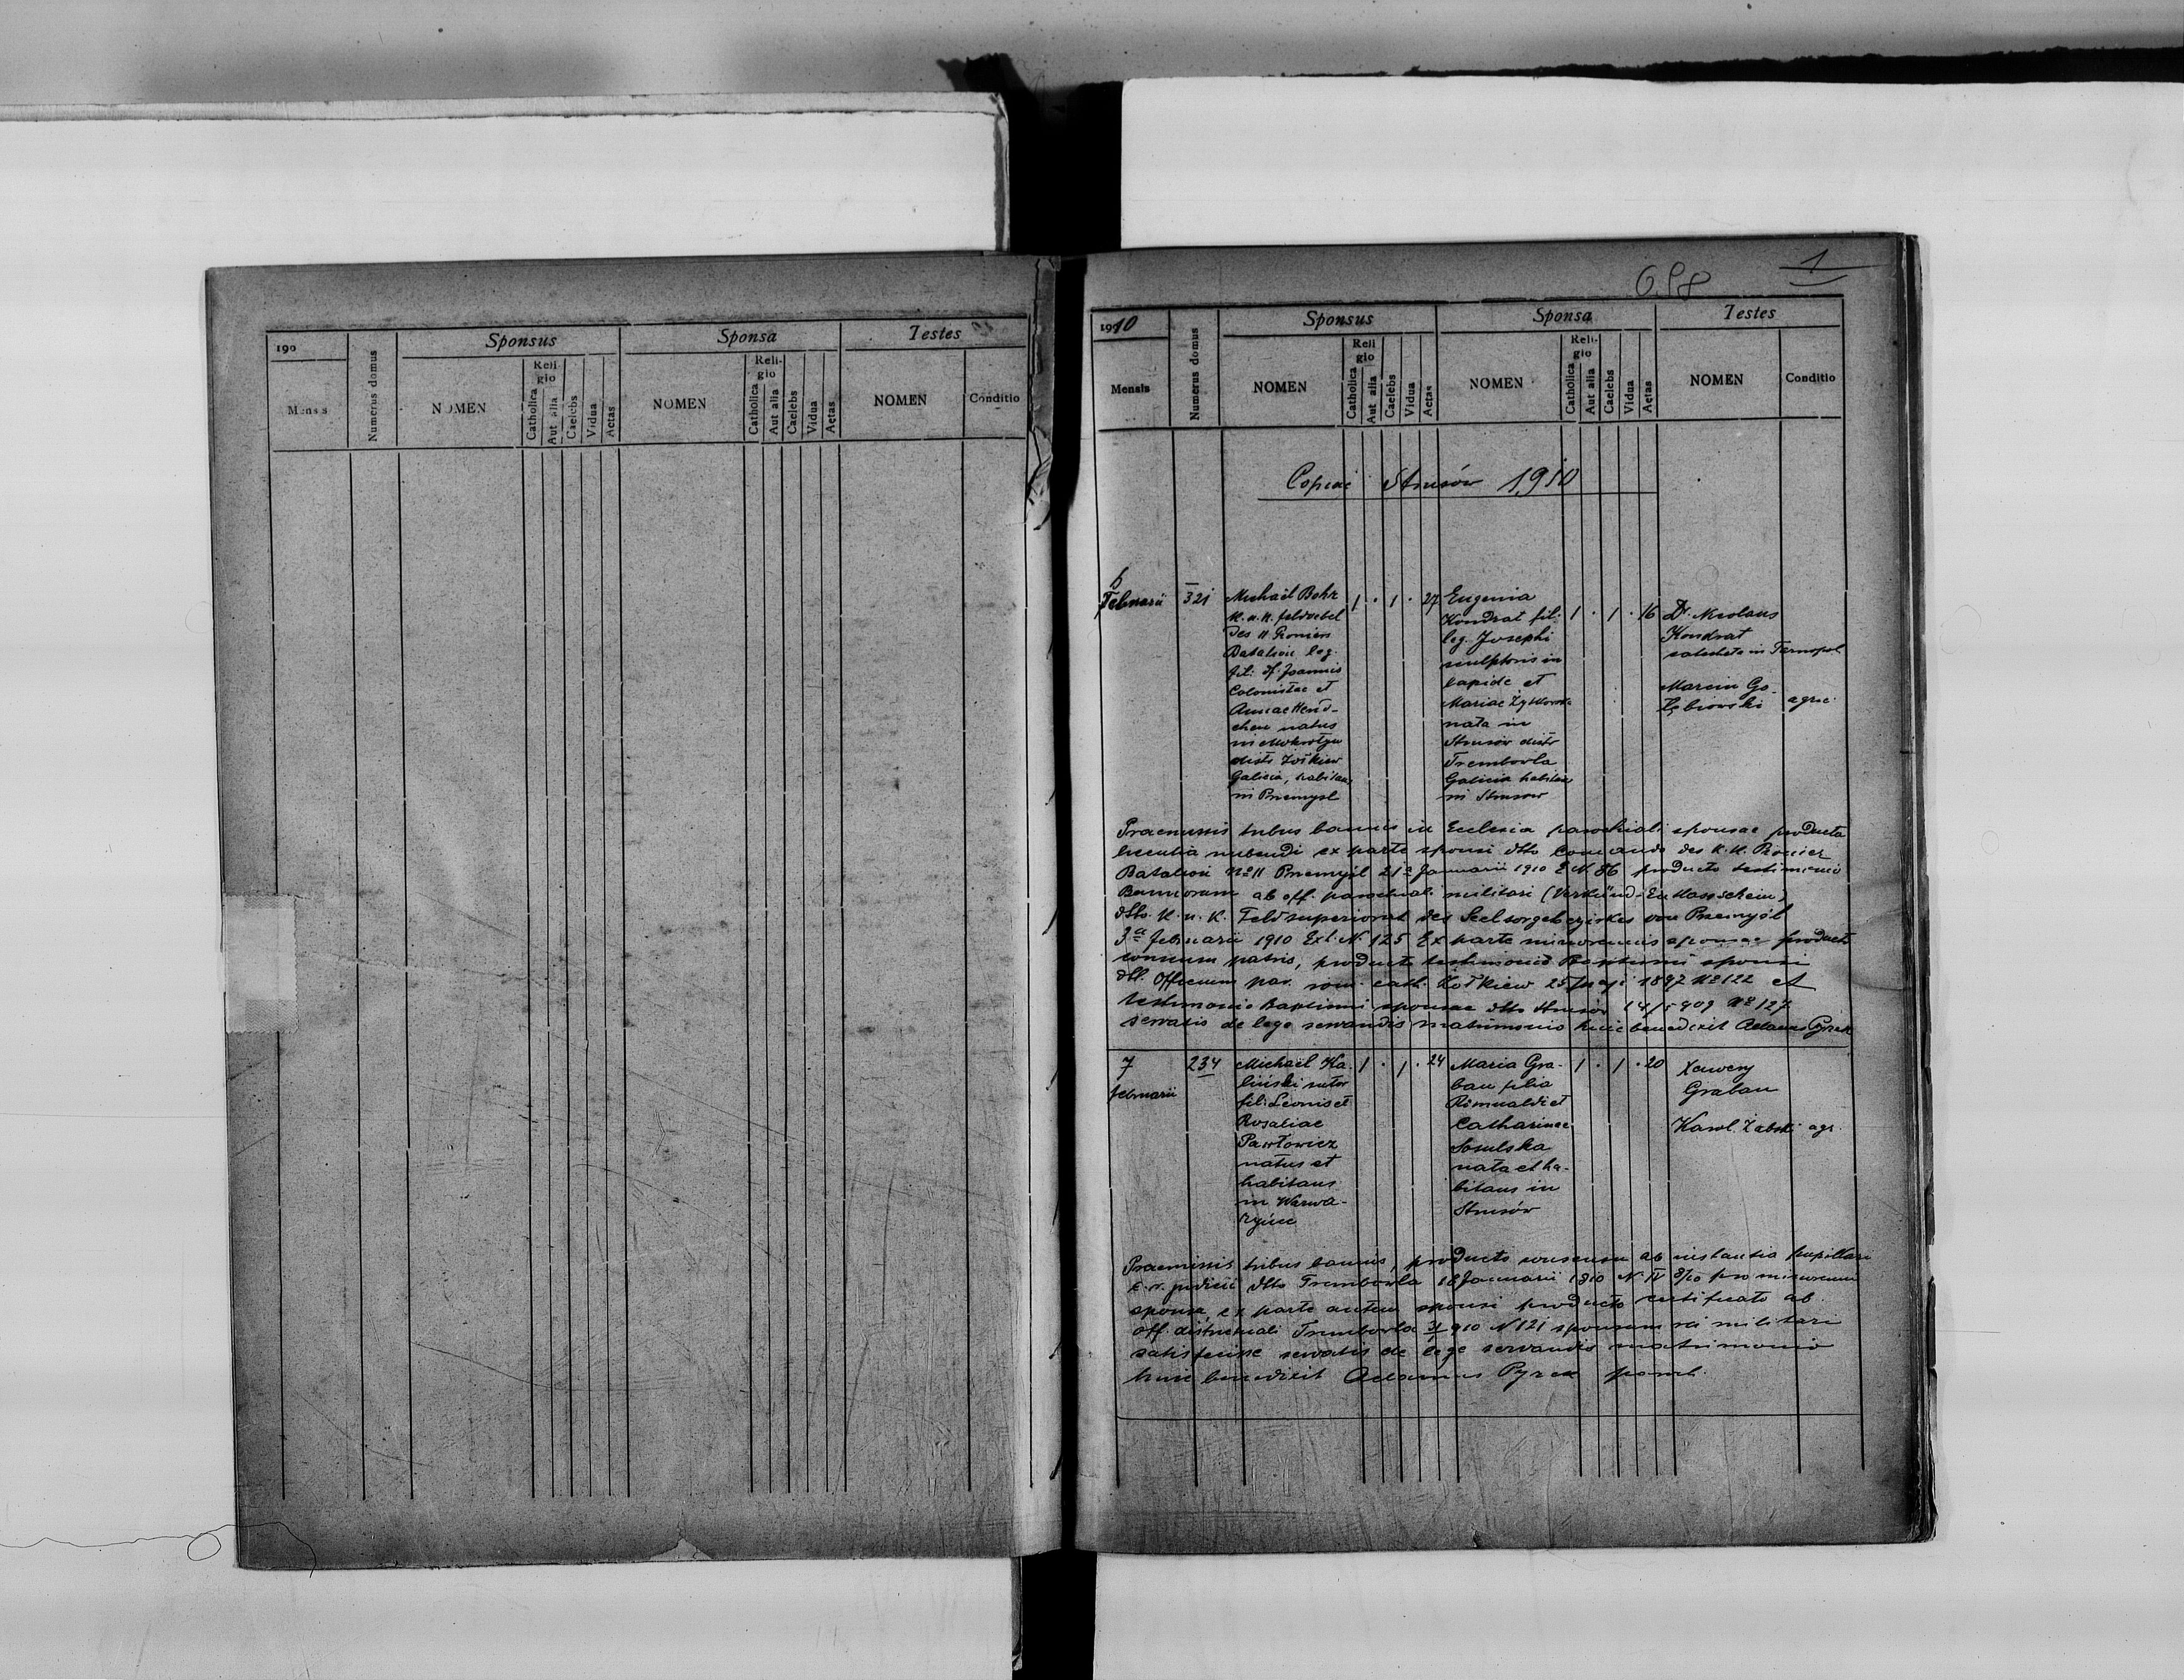 190
Mensis
Numerus domus
Sponsus
NOMEN
Reli
gio
Catholica
Aut alia
Caelebs
Vidua
Aetas
Sponsa
NOMEN
Reli-
gio
Catholica
Aut alia
Caelebs
Vidua
Aetas
Testes
NOMEN
Conditio
698
1
1910
Mensis
Numerus domus
Sponsus
NOMEN
Reli
gio
Catholica
Aut alia
Caelebs
Vidua
Aetas
Sponsa
NOMEN
Reli-
gio
Catholica
Aut alia
Caelebs
Vidua
Aetas
Testes
NOMEN
Conditio
Copiae Strusów 1910
6
Februarii
321
Michael
K. u. K. feldwebel
des 11 Pioniers
Batalion leg.
fil. Joannis
Colonistae et
Annae Hend-
chen natus
in Mokrotyn
distr Żołkiew
Galicia, habitans
in Przemyśl
1 . 1 . 27
Eugenia
Kondrat fil.
leg. Josephi
sculptoris in
lapide et
Mariae
nata in
Strusów distr
Trembowla
Galicia habitans
in Strusow
1 . 1 . 16
Dr. Nicolaus
Kondrat
catecheta in Tarnopol
Marcin Go-
łębiowski agric.
Praemissis tribus bannis in Ecclesia parochiali sponsae producta
licentia nubendi ex parte sponsi dtto Comando des K. K. Pionier
Batalion No 11 Przemyśl 21 Januarii 1910 E. N. 86 producto testimonio
Bannorum ab off. parochiali militari (Verkünd-Entlasschein)
dtto. K. u. K. Feldsuperiorat des Seelsorgebezirkes von Przemyśl
3a februarii 1910 Exh. N. 125 Ex parte minorennis sponsae producto
consensu patris, producto testimonio Baptismi sponsi
dtt. Officium par. rom. cath. Żołkiew 25 Maji 1897 No 122 et
testimonio Baptismi sponsae dtto Strusów 14/5 909 No 127
servatis de lege servandis matrimonio huic benedixit Adamus Pyrek
7
februarii
234
Michaël Ka-
liński sutor
fil. Leonis et
Rosaliae
Pawłowicz
natus et
habitans
in Warwa-
ryńce
1 . 1 . 24
Maria Gra-
ban filia
Romualdi et
Catharinae
Sosulska
nata et ha-
bitans in
Strusów
1 . 1 . 20
Xawery
Graban
Karol Żabski agr.
Praemissis tribus bannis, producto consensu ab instantia pupillari
c. r. judicii dtto Trembowla 18 Januarii 1910 N. IV 8/10 pro minorenni
sponsa, ex parte autem sponsi producto certificato ab
off. districtuali Trembowla 910 N 121 sponsum rei militari
satisfecisse servatis de lege servandis matrimonio
huic benedixit Adamus Pyrek paroch.